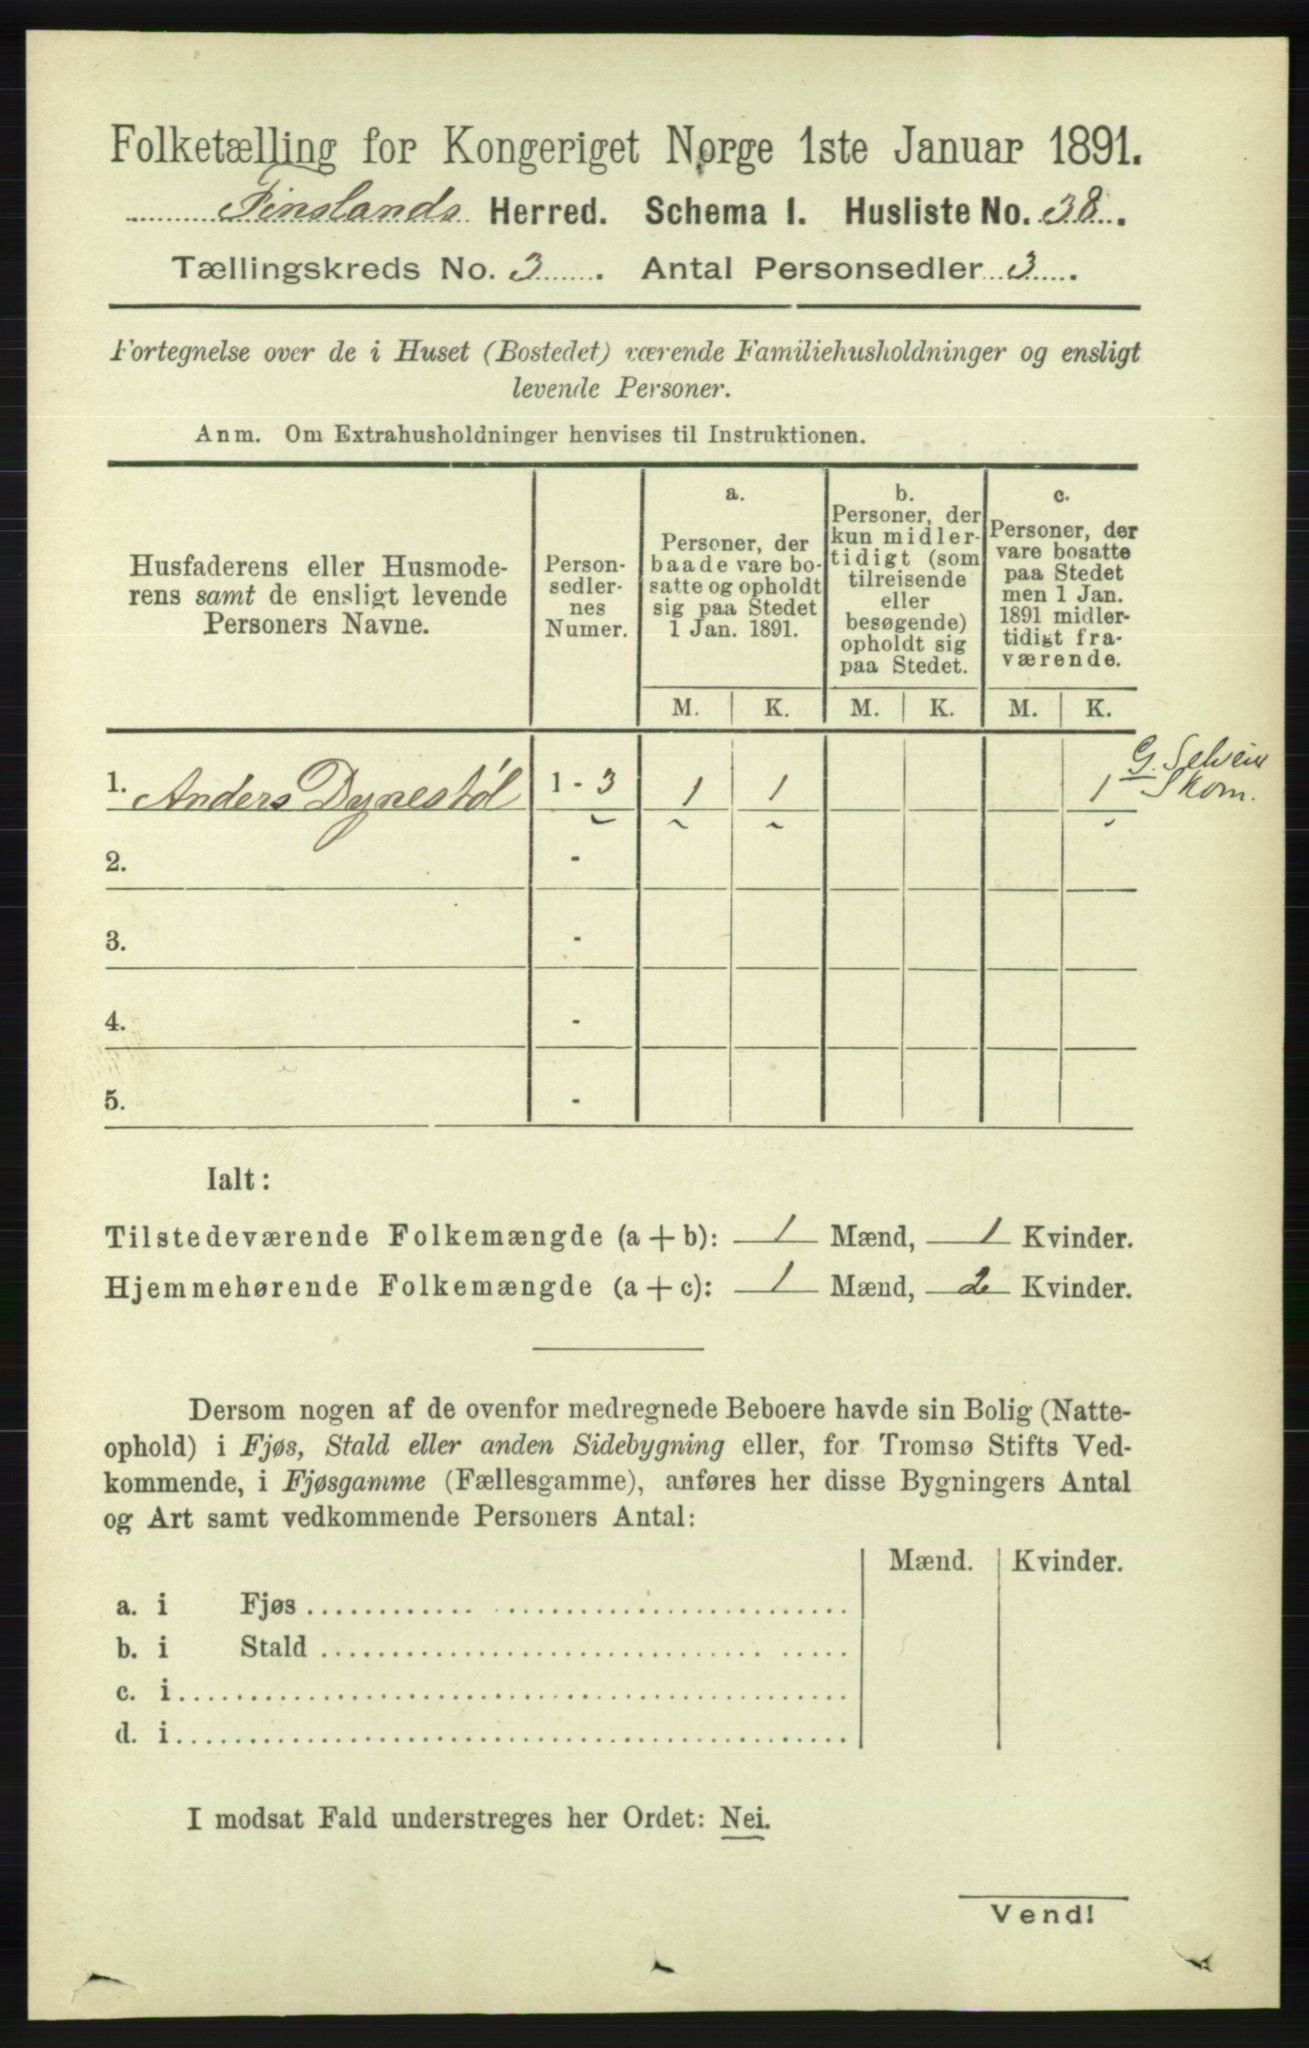 Folketælling for Kongeriget Norge 1ste Januar 1891.
Finslands Herred. Schema I. Husliste No. 38.
Tællingskreds No. 3. Antal Personsedler 3.
Fortegnelse over de i Huset (Bostedet) værende Familiehusholdninger og ensligt
levende Personer.
Anm. Om Extrahusholdninger henvises til Instruktionen.
Husfaderens eller Husmode-
rens samt de ensligt levende
Personers Navne.
Person-
sedler-
nes
Numer.
a.
Personer, der
baade vare bo-
satte og opholdt
sig paa Stedet
1 Jan. 1891.
b.
Personer, der
kun midler-
tidigt (som
tilreisende
eller
besøgende)
opholdt sig
paa Stedet.
c.
Personer, der
vare bosatte
paa Stedet
men 1 Jan.
1891 midler-
tidigt fra-
værende.
M. K. M. K. M. K.
1. Anders Dynestøl 1 - 3 1 1 1 G. Selveier
Skom.
2. -
3. -
4. -
5. -
Ialt:
Tilstedeværende Folkemængde (a + b): 1 Mænd, 1 Kvinder.
Hjemmehørende Folkemængde (a + c): 1 Mænd, 2 Kvinder.
Dersom nogen af de ovenfor medregnede Beboere havde sin Bolig (Natte-
ophold) i Fjøs, Stald eller anden Sidebygning eller, for Tromsø Stifts Ved-
kommende, i Fjøsgamme (Fællesgamme), anføres her disse Bygningers Antal
og Art samt vedkommende Personers Antal:
Mænd. Kvinder.
a. i Fjøs
b. i Stald
c. i
d. i
I modsat Fald understreges her Ordet: Nei.
Vend!